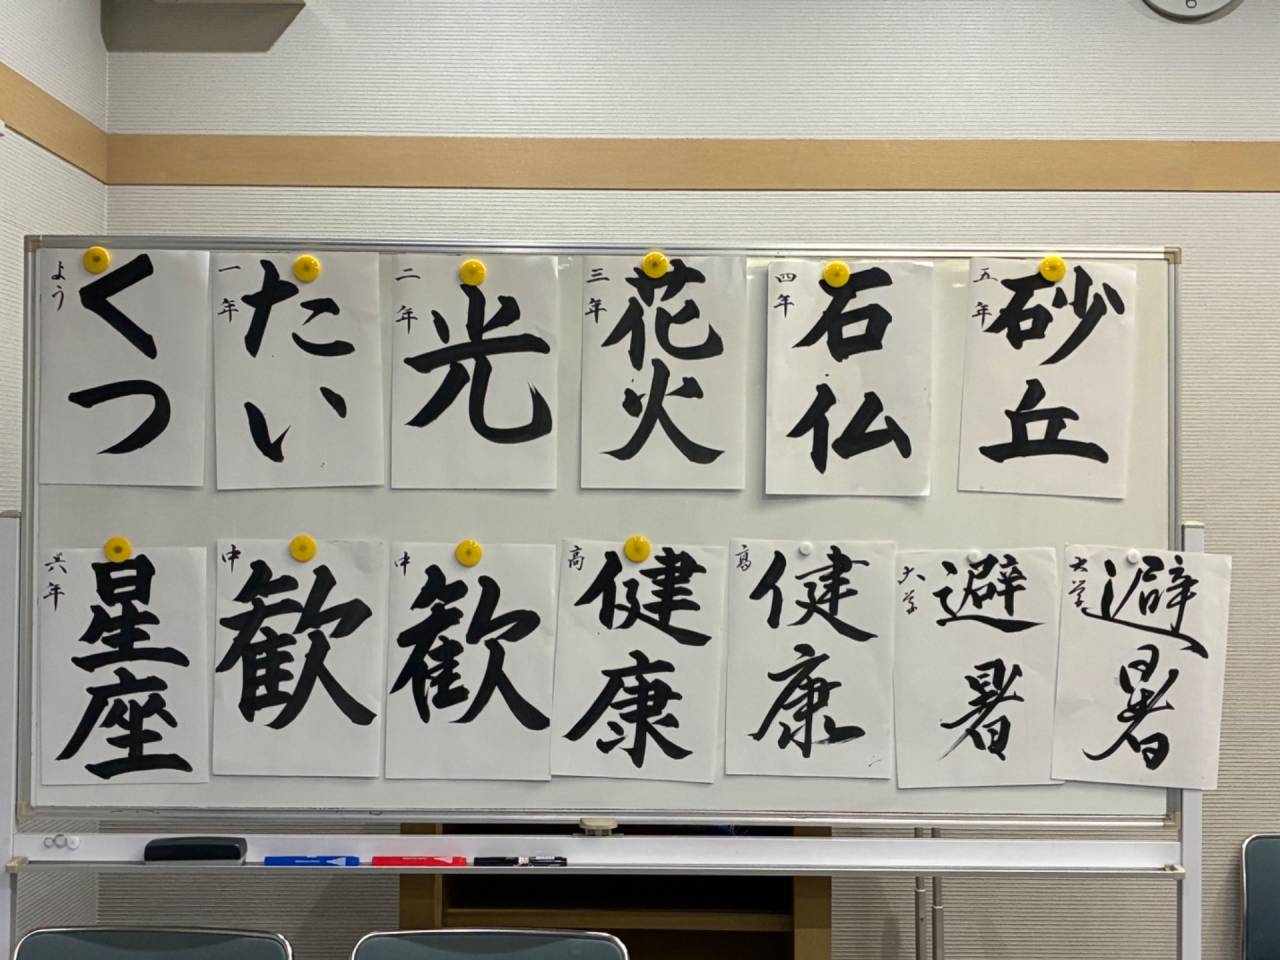 よう
くつ
一年
たい
二年
光
三年
花火
四年
石仏
五年
砂丘
六年
星座
中
歓
中
歓
高
健康
高
健康
大学
避暑
大学
避暑